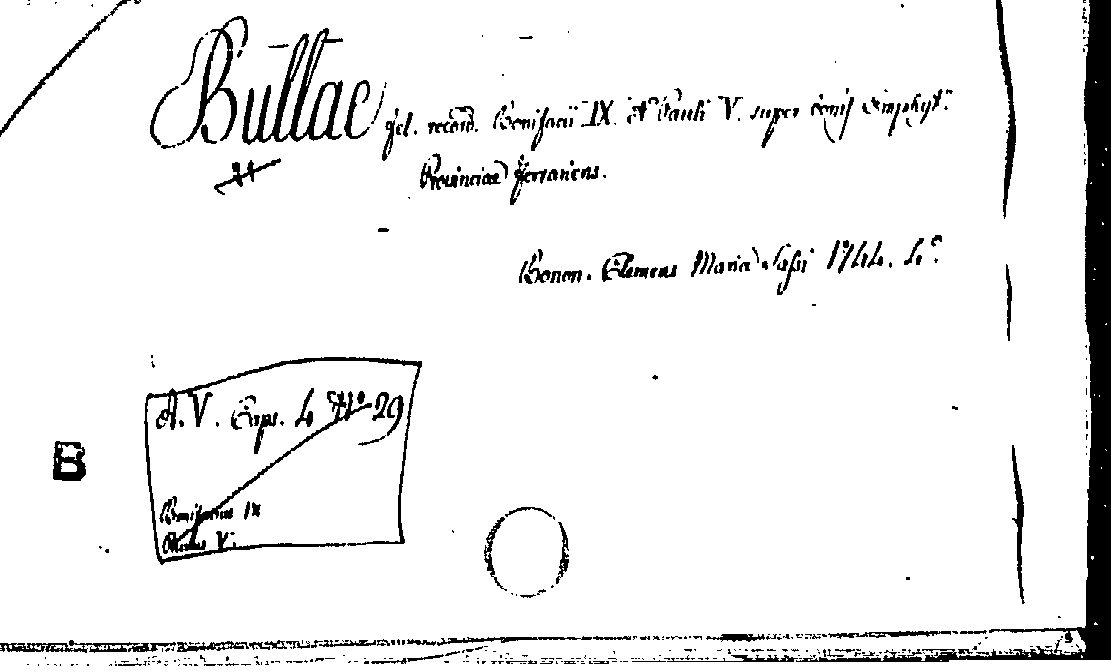 Bullae fel. record. Bonifacii IX. et Pauli V. super bonis Emphyt.
Provinciae Ferrariens.
Bonon. Clemens Maria Sassi 1744. 4.°
A. V. Caps. 4 N.° 29
B
Bonifacius IX
Paulus V.